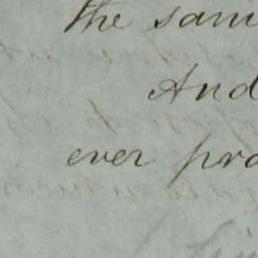 the sam
And
ever pro